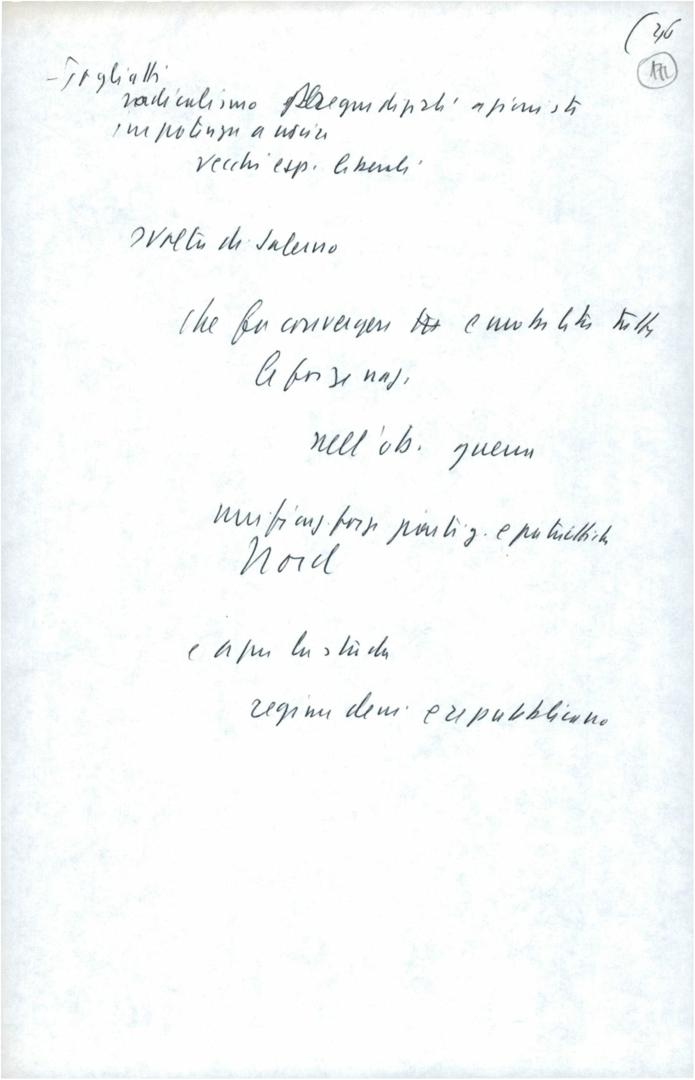 (36
172
- Togliatti
radicalismo e equidist. azionisti
impotenza a uscire
vecchi esp. liberali
svolta di Salerno
che fa convergere e mobilita tutte
le forze naz.
nell'ob. guerra
unificaz. forze partig. e patriottiche
Nord
e apre la strada
regime dem. e repubblicano